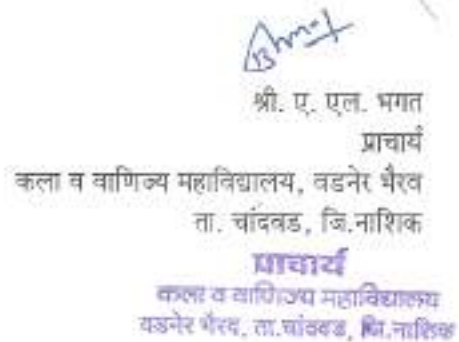 श्री. ए. एल. भगत
प्राचार्य
कला व वाणिज्य महाविद्यालय, वडनेर भैरव
ता. चांदवड, जि.नाशिक
प्राचार्य
कला व वाणिज्य महाविद्यालय
वडनेर भैरव, ता.चांदवड, जि.नाशिक